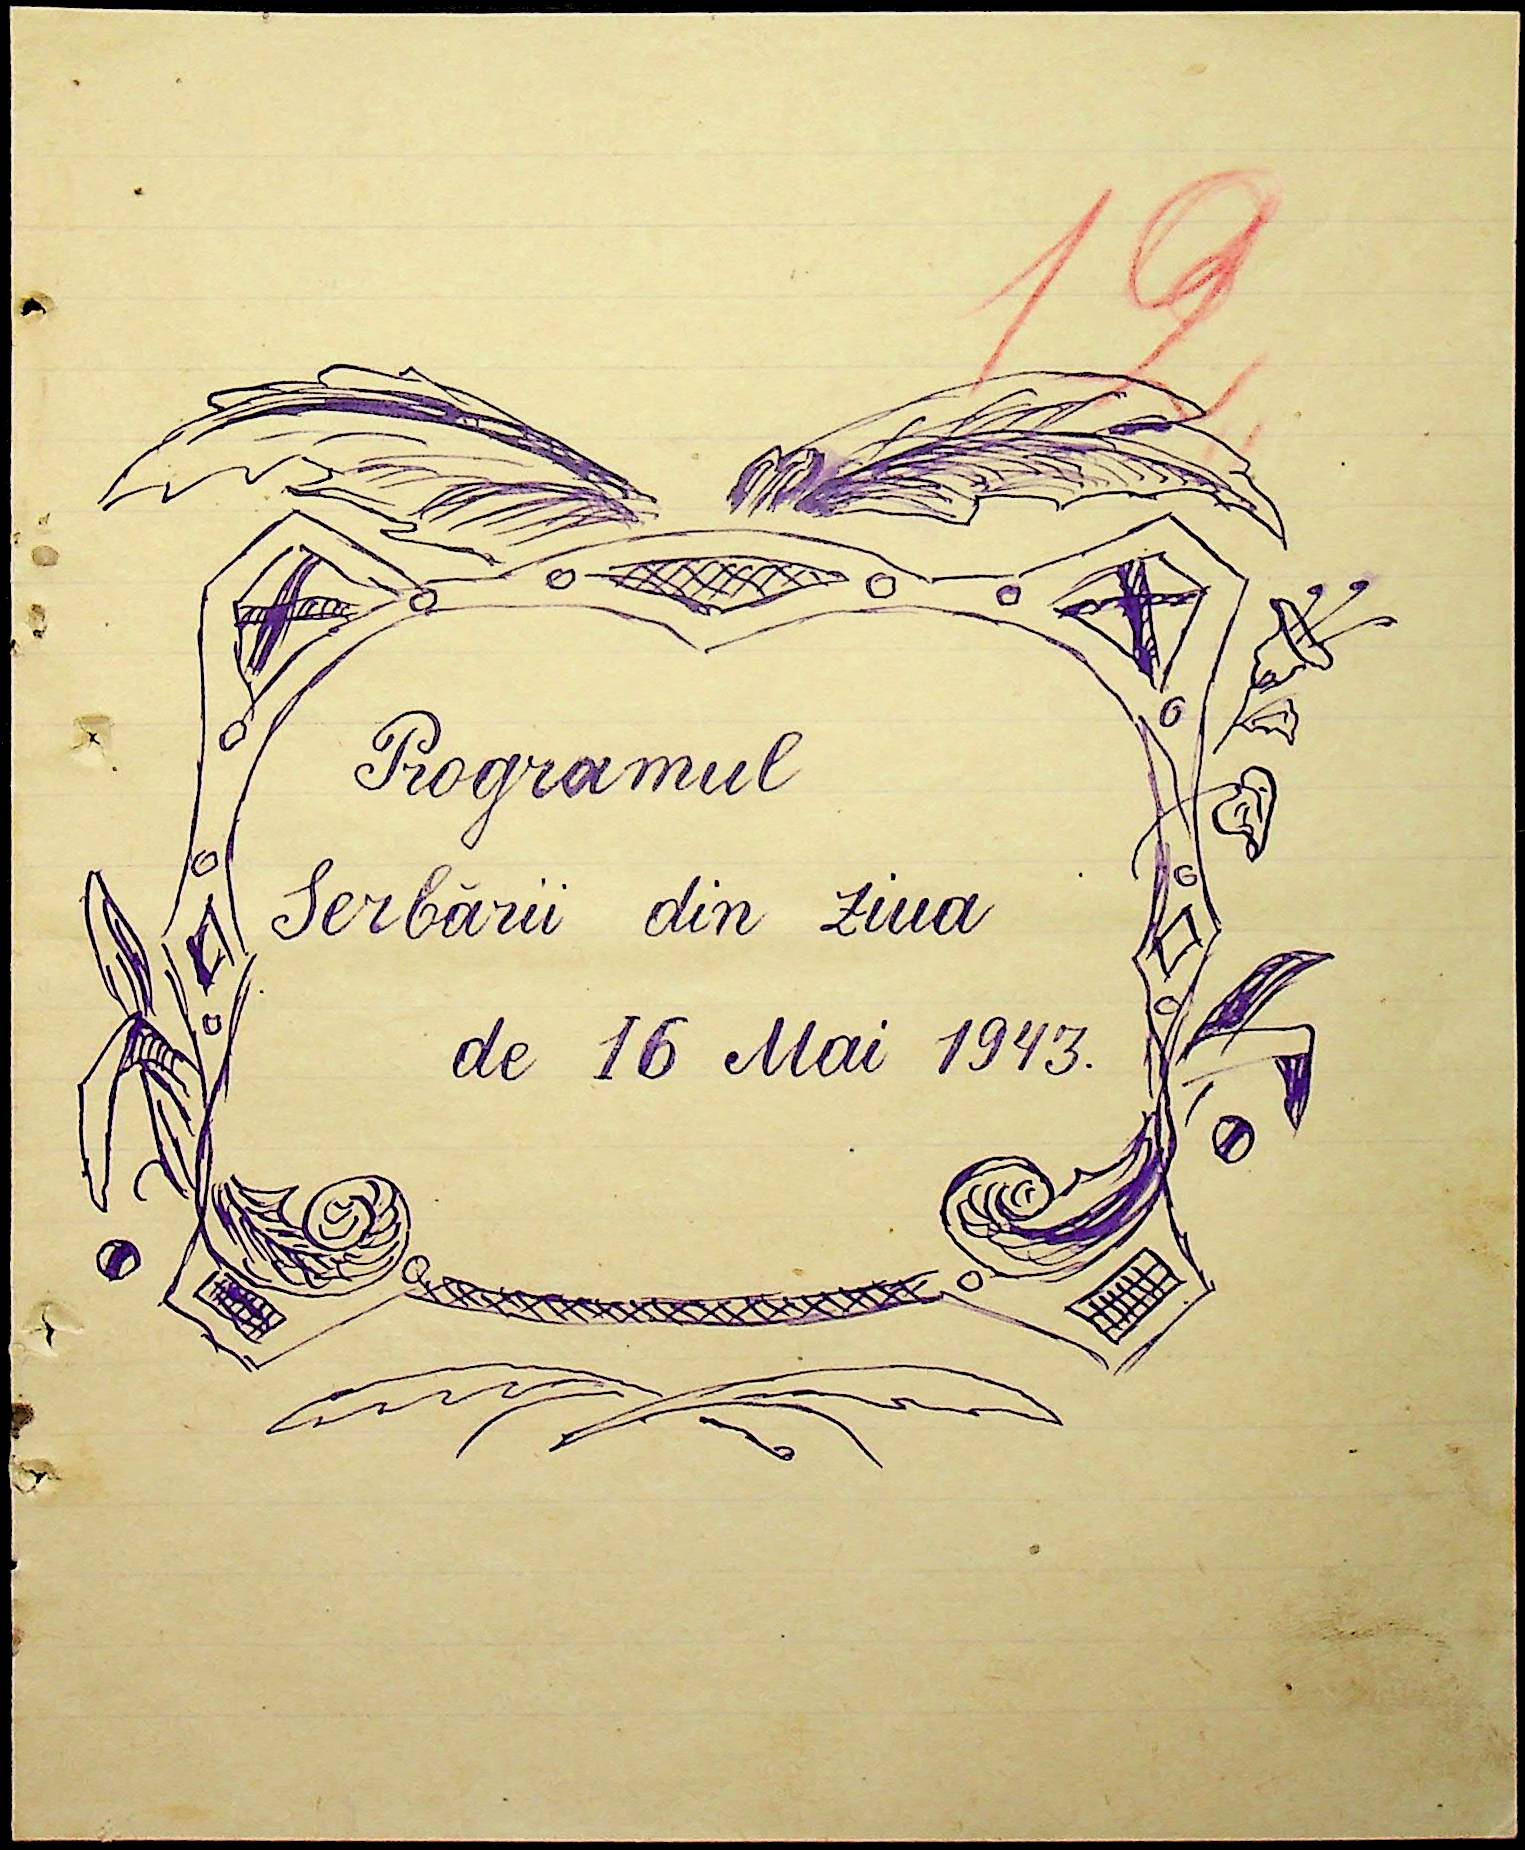 12
Programul
Serbării din ziua
de 16 Mai 1943.